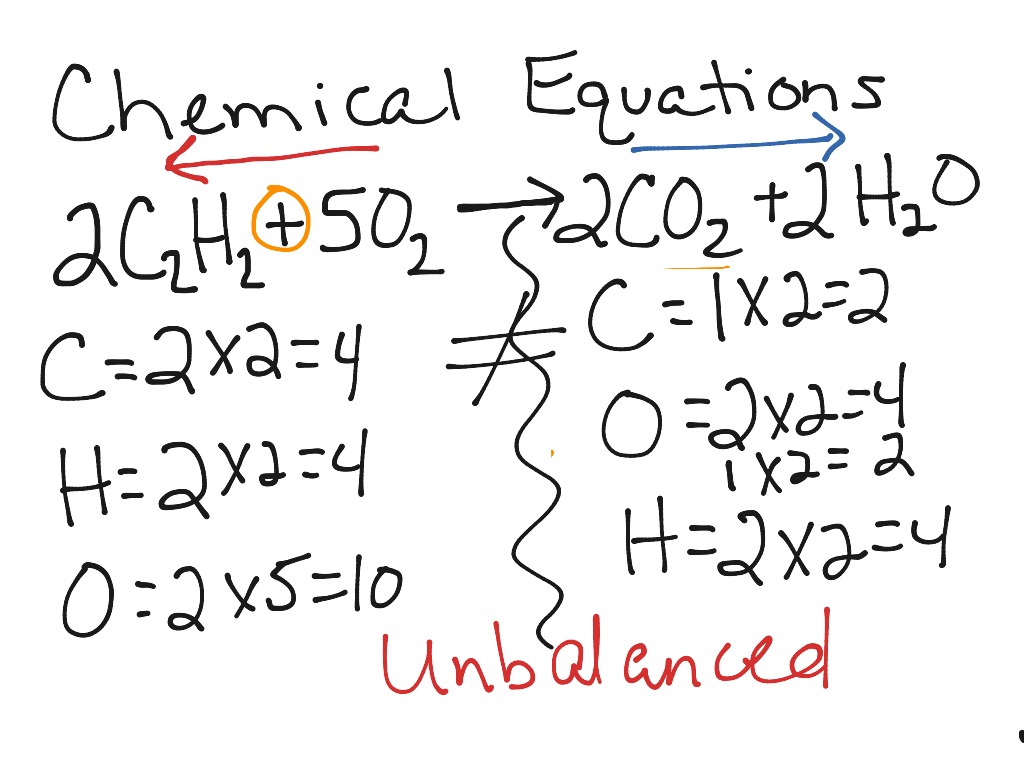 Chemical Equations
2C₂H₂ + 5O₂ → 2CO₂ + 2H₂O
C = 2 x 2 = 4
H = 2 x 2 = 4
O = 2 x 5 = 10
≠
C = 1 x 2 = 2
O = 2 x 2 = 4
1 x 2 = 2
H = 2 x 2 = 4
Unbalanced